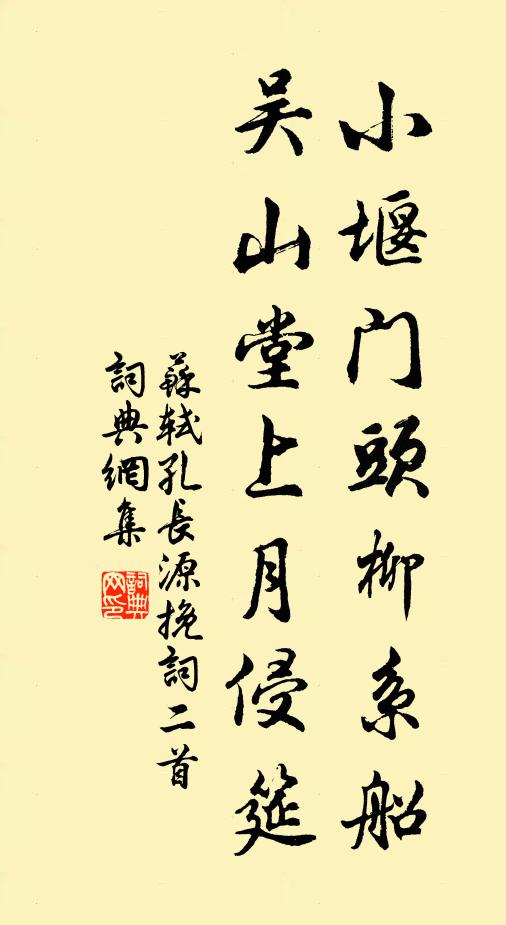 小堰门頭柳系船
吴山堂上月侵筵
蘇轼孔長源挽詞二首
詞典網集
詞典网印